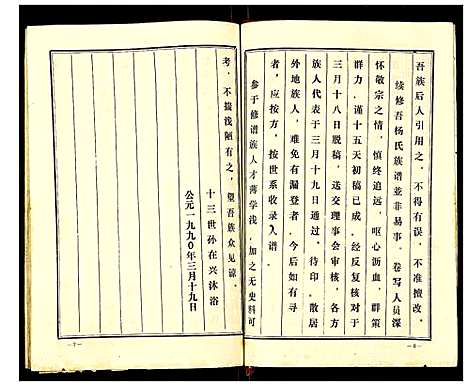 吾族后人引用之，不得有误，不准擅改。
续修吾杨氏族谱並非易事。卷写人员深
怀敬宗之情，慎终追远，呕心沥血，群策
群力。谨十五天初稿已成。经反复核对于
三月十八日脱稿，送交理事会审核，各方
族人代表于三月十九日通过，待印。散居
外地族人，难免有漏登者。今后如有发现
者，应按方，按世系收录入谱。
参于修谱族人才薄学浅，加之无史料可
-6-
考，不拨浅陋有之，望吾族众见谅。
十三世孙在兴沐浴
公元一九九0年三月十九日
-7-